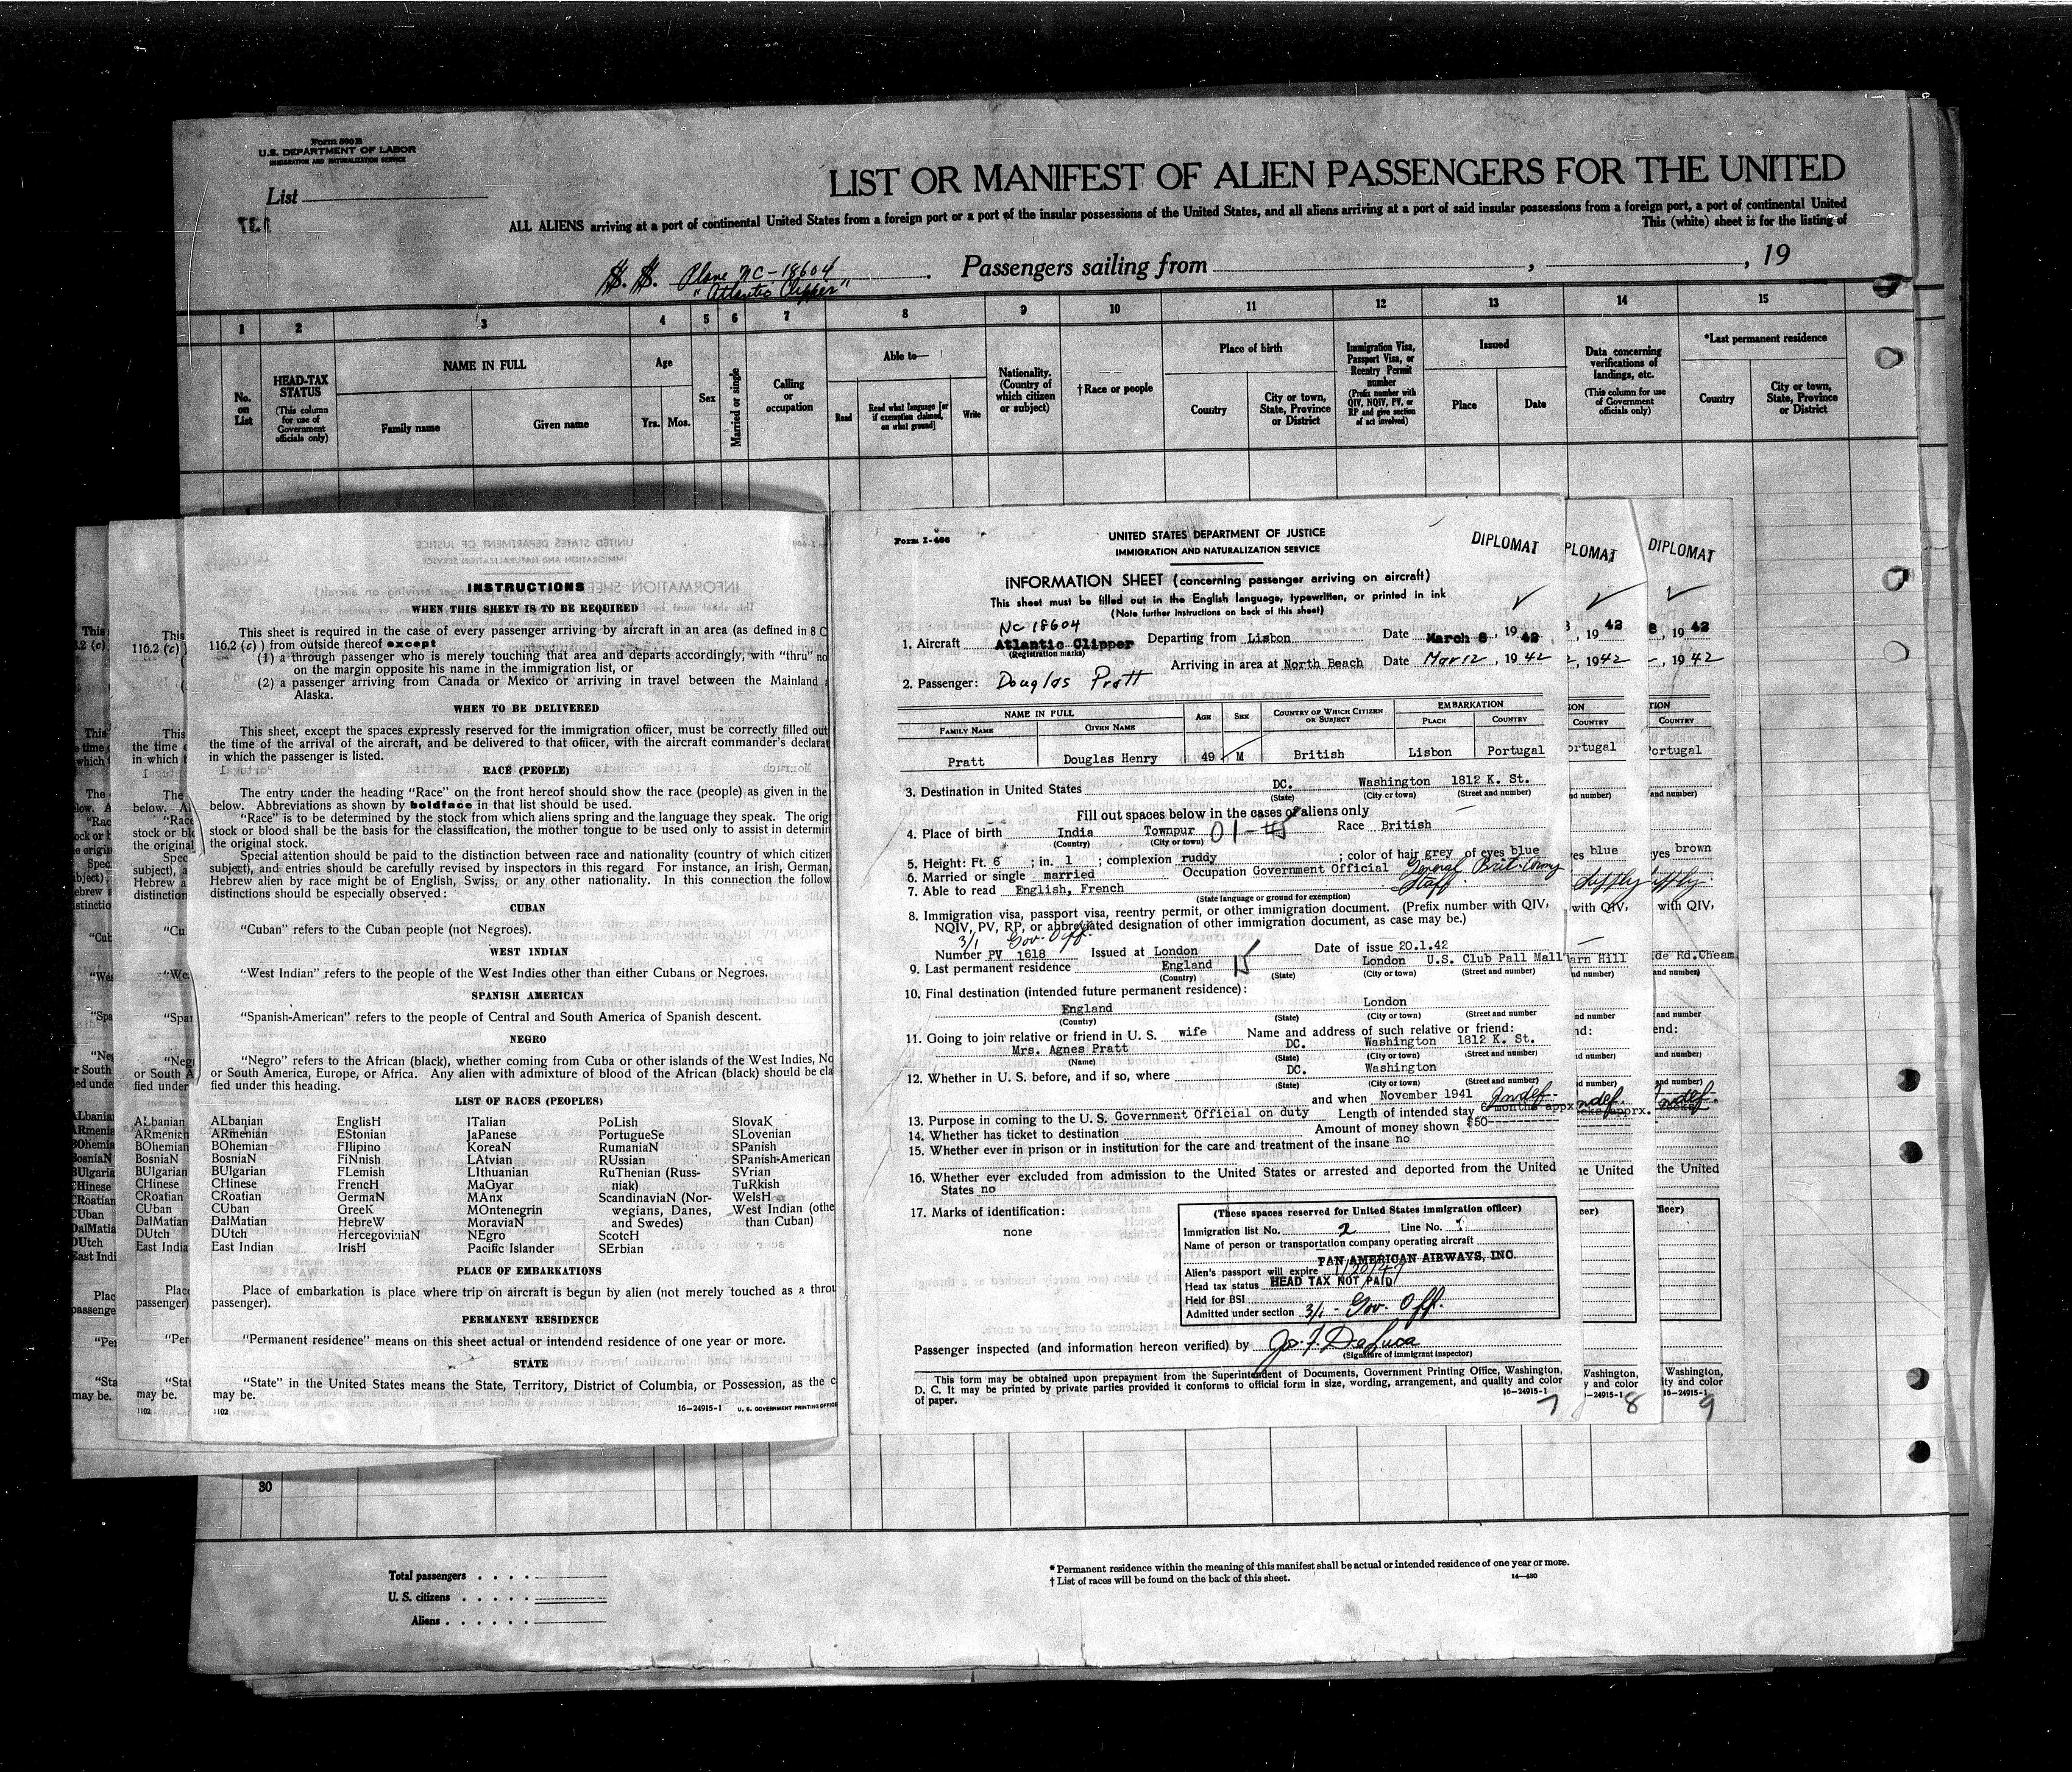 Form 500 B
U.S. DEPARTMENT OF LABOR
IMMIGRATION AND NATURALIZATION SERVICE
List
137
LIST OR MANIFEST OF ALIEN PASSENGERS FOR THE UNITED
ALL ALIENS arriving at a port of continental United States from a foreign port or a port of the insular possessions of the United States, and all aliens arriving at a port of said insular possessions from a foreign port, a port of continental United
This (white) sheet is for the listing of
S. S. Plane NC-18604 . Passengers sailing from , , 19
"Atlantic Clipper"
1 2 3 4 5 6 7 8 9 10 11 12 13 14 15
No. on List
HEAD-TAX STATUS
(This column for use of Government officials only)
NAME IN FULL
Family name Given name
Age
Yrs. Mos.
Sex
Married or single
Calling or occupation
Able to—
Read
Read what language [or if exemption claimed, on what ground]
Write
Nationality. (Country of which citizen or subject)
†Race or people
Place of birth
Country
City or town, State, Province or District
Immigration Visa, Passport Visa, or Reentry Permit number
(Prefix number with QIV, NQIV, PV, or RP and give section of act involved)
Issued
Place Date
Data concerning verifications of landings, etc.
(This column for use of Government officials only)
*Last permanent residence
Country
City or town, State, Province or District
INSTRUCTIONS
WHEN THIS SHEET IS TO BE REQUIRED
This sheet is required in the case of every passenger arriving by aircraft in an area (as defined in 8 C
116.2 (c) ) from outside thereof except
(1) a through passenger who is merely touching that area and departs accordingly, with "thru" no
on the margin opposite his name in the immigration list, or
(2) a passenger arriving from Canada or Mexico or arriving in travel between the Mainland a
Alaska.
WHEN TO BE DELIVERED
This sheet, except the spaces expressly reserved for the immigration officer, must be correctly filled out
the time of the arrival of the aircraft, and be delivered to that officer, with the aircraft commander's declarat
in which the passenger is listed.
RACE (PEOPLE)
The entry under the heading "Race" on the front hereof should show the race (people) as given in the
below. Abbreviations as shown by boldface in that list should be used.
"Race" is to be determined by the stock from which aliens spring and the language they speak. The orig
stock or blood shall be the basis for the classification, the mother tongue to be used only to assist in determin
the original stock.
Special attention should be paid to the distinction between race and nationality (country of which citizen
subject), and entries should be carefully revised by inspectors in this regard For instance, an Irish, German,
Hebrew alien by race might be of English, Swiss, or any other nationality. In this connection the follow
distinctions should be especially observed:
CUBAN
"Cuban" refers to the Cuban people (not Negroes).
WEST INDIAN
"West Indian" refers to the people of the West Indies other than either Cubans or Negroes.
SPANISH AMERICAN
"Spanish-American" refers to the people of Central and South America of Spanish descent.
NEGRO
"Negro" refers to the African (black), whether coming from Cuba or other islands of the West Indies, No
or South America, Europe, or Africa. Any alien with admixture of blood of the African (black) should be cla
fied under this heading.
LIST OF RACES (PEOPLES)
ALbanian EnglisH ITalian PoLish SlovaK
ARmenian EStonian JaPanese PortugueSe SLovenian
BOhemian FIlipino KoreaN RumaniaN SPanish
BosniaN FiNnish LAtvian RUssian SPanish-American
BUlgarian FLemish LIthuanian RuThenian (Russ- SYrian
CHinese FrencH MaGyar niak) TuRkish
CRoatian GermaN MAnx ScandinaviaN (Nor- WelsH
CUban GreeK MOntenegrin wegians, Danes, West Indian (othe
DalMatian HebreW MoraviaN and Swedes) than Cuban)
DUtch HercegoviniaN NEgro ScotcH
East Indian IrisH Pacific Islander SErbian
PLACE OF EMBARKATIONS
Place of embarkation is place where trip on aircraft is begun by alien (not merely touched as a throu
passenger).
PERMANENT RESIDENCE
"Permanent residence" means on this sheet actual or intendend residence of one year or more.
STATE
"State" in the United States means the State, Territory, District of Columbia, or Possession, as the c
may be.
1102 16—24915-1 U. S. GOVERNMENT PRINTING OFFICE
Form I-466
UNITED STATES DEPARTMENT OF JUSTICE
IMMIGRATION AND NATURALIZATION SERVICE
DIPLOMAT PLOMAT DIPLOMAT
INFORMATION SHEET (concerning passenger arriving on aircraft)
This sheet must be filled out in the English language, typewritten, or printed in ink
(Note further instructions on back of this sheet)
NC 18604
1. Aircraft Atlantic Clipper Departing from Lisbon Date March 8, 19 42
(Registration marks)
Arriving in area at North Beach Date Mar 12, 19 42
2. Passenger: Douglas Pratt
NAME IN FULL AGE SEX COUNTRY OF WHICH CITIZEN OR SUBJECT EMBARKATION
FAMILY NAME GIVEN NAME PLACE COUNTRY
Pratt Douglas Henry 49 M British Lisbon Portugal
3. Destination in United States DC. Washington 1812 K. St.
(State) (City or town) (Street and number)
Fill out spaces below in the cases of aliens only
4. Place of birth India Townpur Race British
(Country) (City or town)
5. Height: Ft. 6 ; in. 1 ; complexion ruddy ; color of hair grey of eyes blue
6. Married or single married Occupation Government Official General Brit. Army
Staff.
7. Able to read English, French
(State language or ground for exemption)
8. Immigration visa, passport visa, reentry permit, or other immigration document. (Prefix number with QIV,
NQIV, PV, RP, or abbreviated designation of other immigration document, as case may be.)
3/1 Gov. Off.
Number PV 1618 Issued at London Date of issue 20.1.42
9. Last permanent residence England London U.S. Club Pall Mall
(Country) (State) (City or town) (Street and number)
10. Final destination (intended future permanent residence):
England London
(Country) (State) (City or town) (Street and number
11. Going to join relative or friend in U. S. wife Name and address of such relative or friend:
Mrs. Agnes Pratt DC. Washington 1812 K. St.
(Name) (State) (City or town) (Street and number)
12. Whether in U. S. before, and if so, where DC. Washington
(State) (City or town) (Street and number)
and when November 1941 Indef.
13. Purpose in coming to the U. S. Government Official on duty Length of intended stay 6 months appx
14. Whether has ticket to destination Amount of money shown $50
15. Whether ever in prison or in institution for the care and treatment of the insane no
16. Whether ever excluded from admission to the United States or arrested and deported from the United
States no
17. Marks of identification:
none
(These spaces reserved for United States immigration officer)
Immigration list No. 2 Line No.
Name of person or transportation company operating aircraft
PAN AMERICAN AIRWAYS, INC.
Alien's passport will expire
Head tax status HEAD TAX NOT PAID
Held for BSI
Admitted under section 3/1 - Gov. Off.
Passenger inspected (and information hereon verified) by Jos. F. DeLuca
(Signature of immigrant inspector)
This form may be obtained upon prepayment from the Superintendent of Documents, Government Printing Office, Washington,
D. C. It may be printed by private parties provided it conforms to official form in size, wording, arrangement, and quality and color
of paper. 16—24915-1
7 8 9
30
Total passengers
U. S. citizens
Aliens
* Permanent residence within the meaning of this manifest shall be actual or intended residence of one year or more.
† List of races will be found on the back of this sheet. 14—430